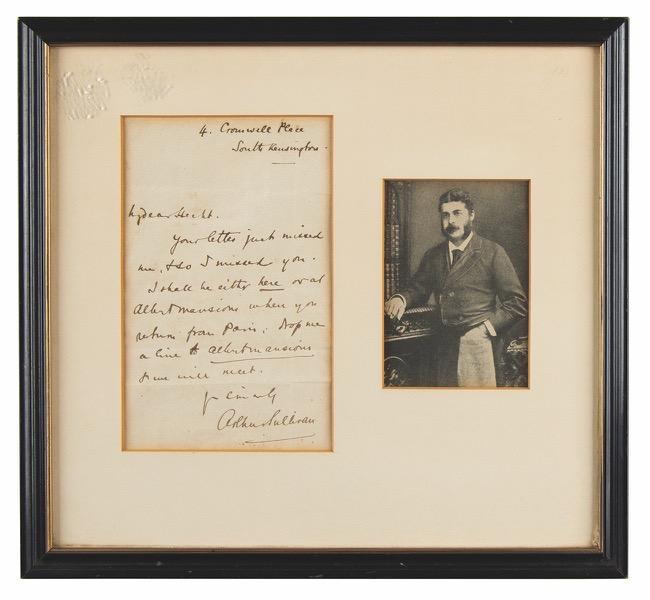 4. Cromwell Place
South Kensington.
My dear Hecht.
Your letter just missed
me, & so I missed you.
I shall be either here or at
Albert mansions when you
return from Paris. Drop me
a line to Albert mansions
& we will meet.
Yrs sincerely
Arthur Sullivan